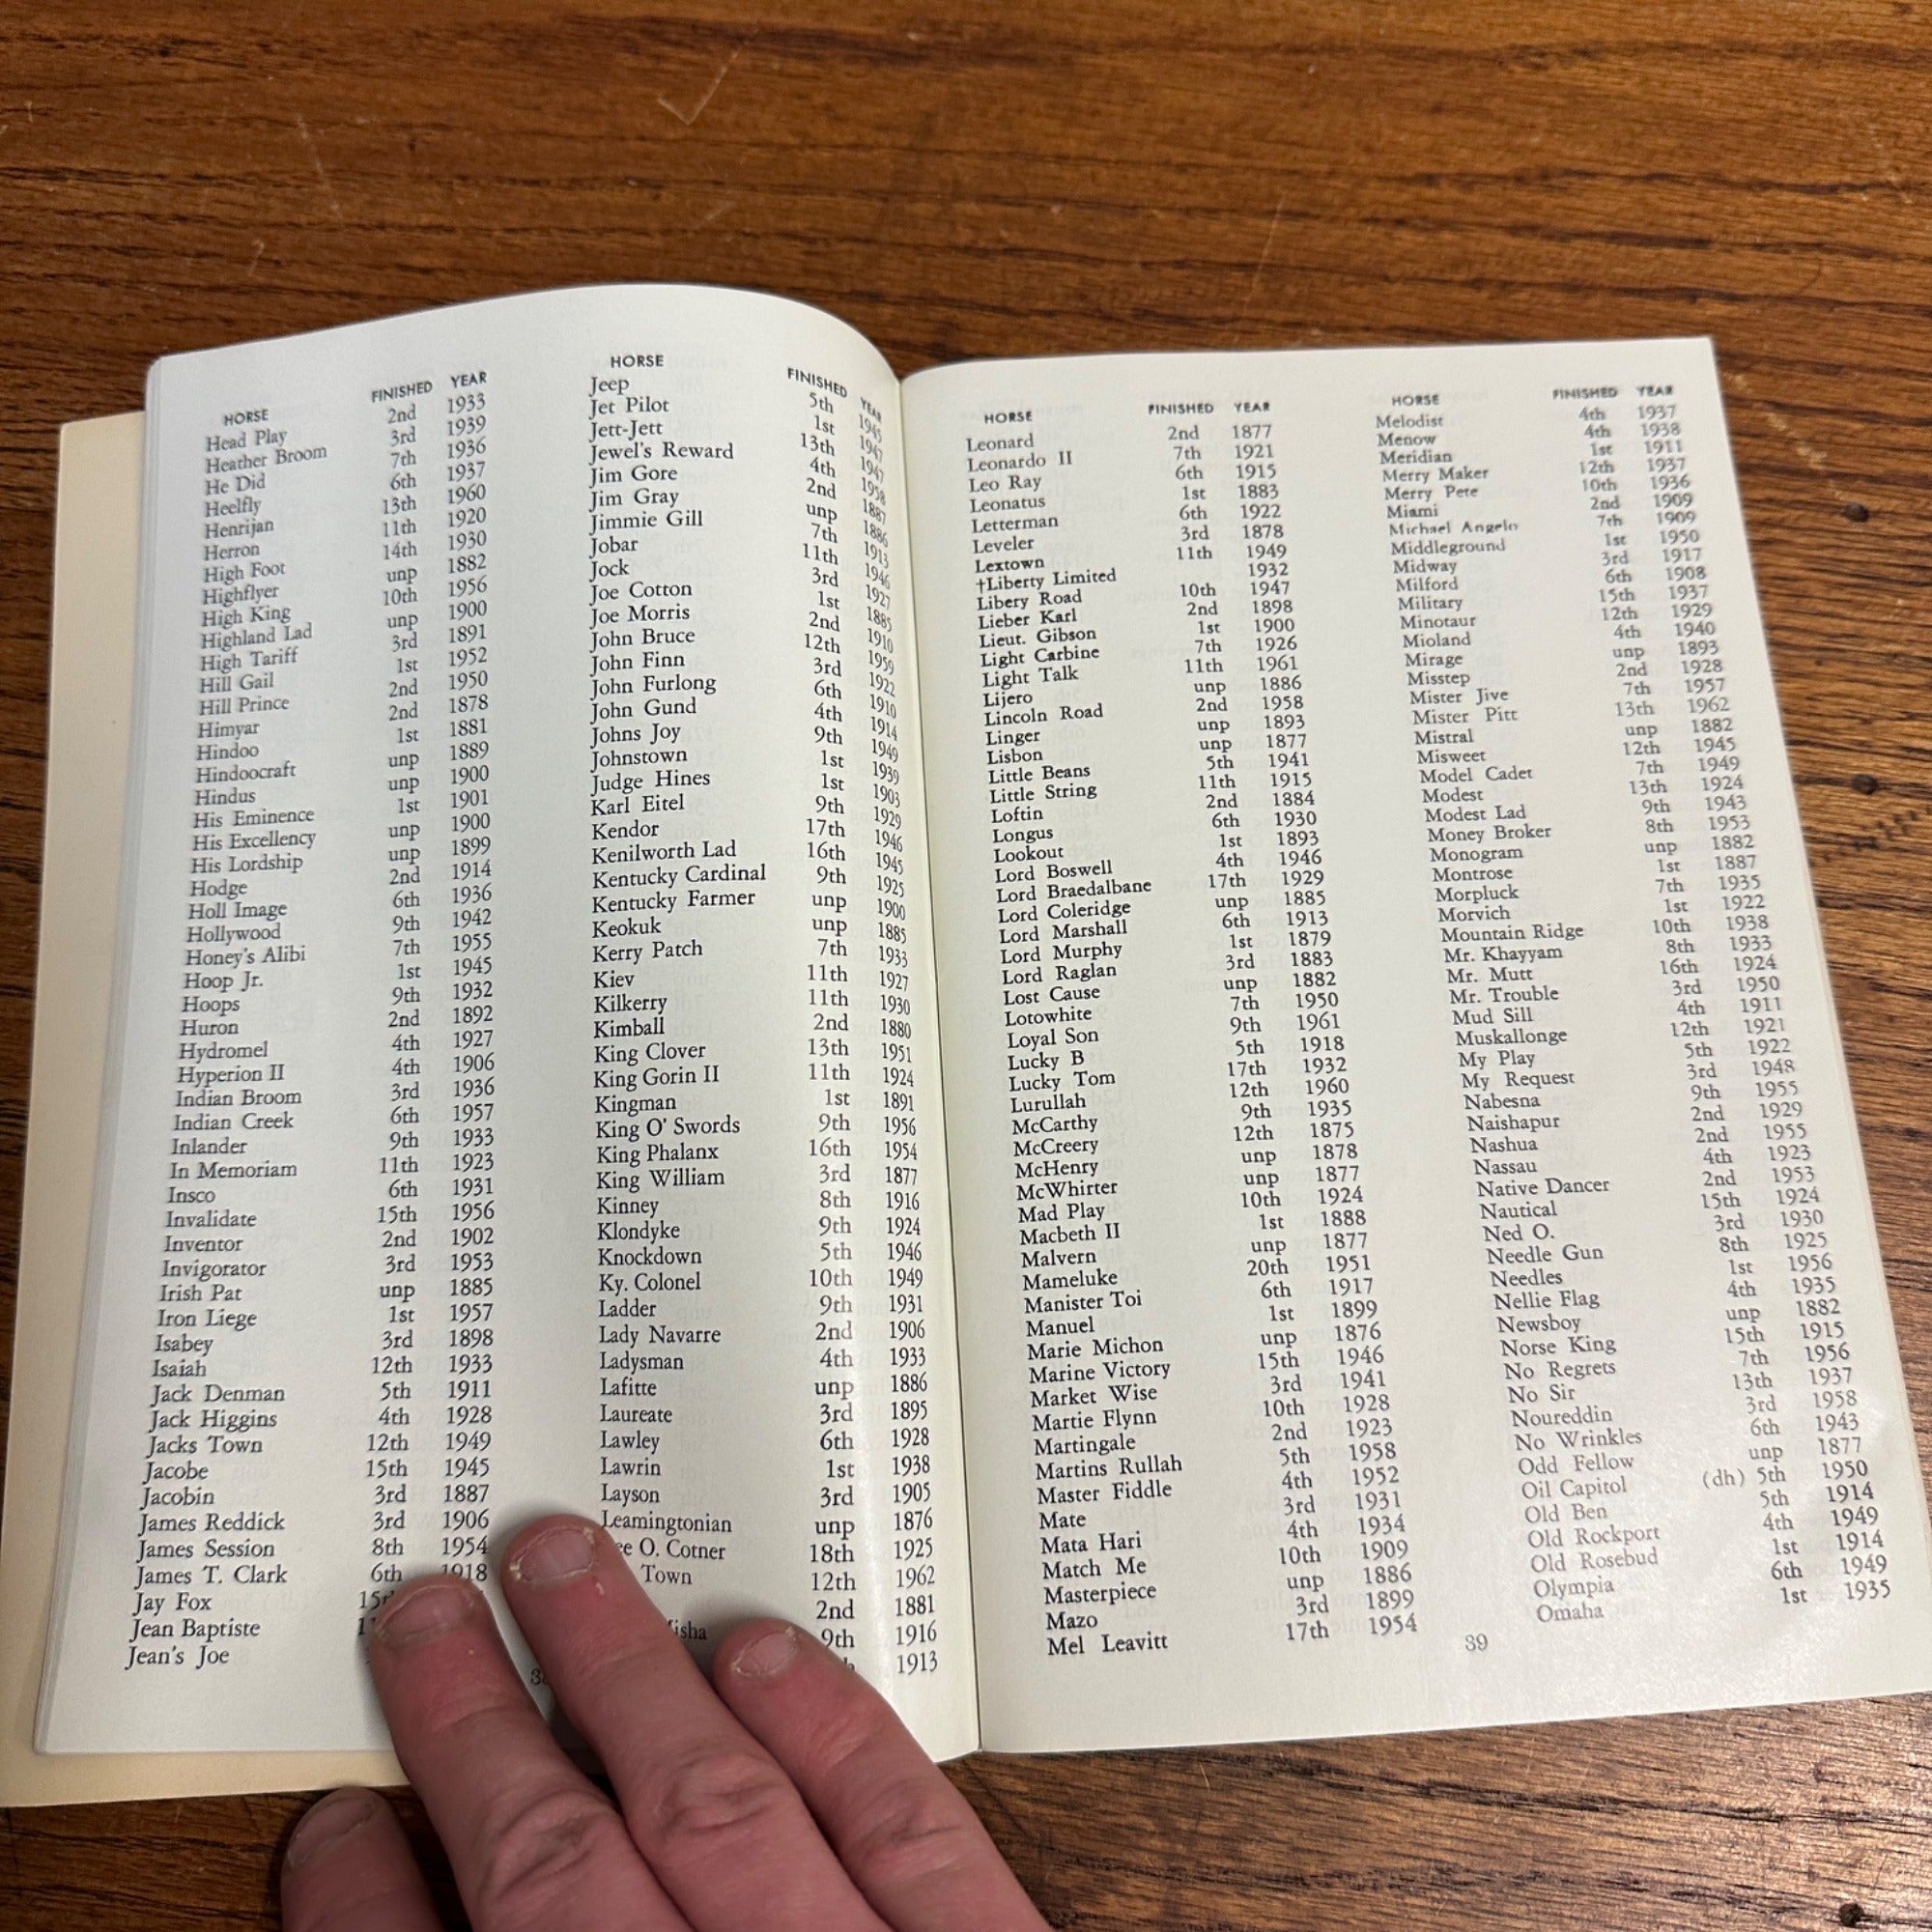 HORSE FINISHED YEAR
Head Play 2nd 1933
Heather Broom 3rd 1939
He Did 7th 1936
Heelfly 6th 1937
Henrijan 13th 1960
Herron 11th 1920
High Foot 14th 1930
Highflyer unp 1882
High King 10th 1956
Highland Lad unp 1900
High Tariff 3rd 1891
Hill Gail 1st 1952
Hill Prince 2nd 1950
Himyar 2nd 1878
Hindoo 1st 1881
Hindoocraft unp 1889
Hindus unp 1900
His Eminence 1st 1901
His Excellency unp 1900
His Lordship unp 1899
Hodge 2nd 1914
Holl Image 6th 1936
Hollywood 9th 1942
Honey's Alibi 7th 1955
Hoop Jr. 1st 1945
Hoops 9th 1932
Huron 2nd 1892
Hydromel 4th 1927
Hyperion II 4th 1906
Indian Broom 3rd 1936
Indian Creek 6th 1957
Inlander 9th 1933
In Memoriam 11th 1923
Insco 6th 1931
Invalidate 15th 1956
Inventor 2nd 1902
Invigorator 3rd 1953
Irish Pat unp 1885
Iron Liege 1st 1957
Isabey 3rd 1898
Isaiah 12th 1933
Jack Denman 5th 1911
Jack Higgins 4th 1928
Jacks Town 12th 1949
Jacobe 15th 1945
Jacobin 3rd 1887
James Reddick 3rd 1906
James Session 8th 1954
James T. Clark 6th 1918
Jay Fox
Jean Baptiste
Jean's Joe
HORSE FINISHED YEAR
Jeep 5th 1945
Jet Pilot 1st 1947
Jett-Jett 13th 1947
Jewel's Reward 4th 1958
Jim Gore 2nd 1887
Jim Gray unp 1886
Jimmie Gill 7th 1913
Jobar 11th 1946
Jock 3rd 1927
Joe Cotton 1st 1885
Joe Morris 2nd 1910
John Bruce 12th 1959
John Finn 3rd 1922
John Furlong 6th 1910
John Gund 4th 1914
Johns Joy 9th 1949
Johnstown 1st 1939
Judge Hines 1st 1903
Karl Eitel 9th 1929
Kendor 17th 1946
Kenilworth Lad 16th 1945
Kentucky Cardinal 9th 1925
Kentucky Farmer unp 1900
Keokuk unp 1885
Kerry Patch 7th 1933
Kiev 11th 1927
Kilkerry 11th 1930
Kimball 2nd 1880
King Clover 13th 1951
King Gorin II 11th 1924
Kingman 1st 1891
King O' Swords 9th 1956
King Phalanx 16th 1954
King William 3rd 1877
Kinney 8th 1916
Klondyke 9th 1924
Knockdown 5th 1946
Ky. Colonel 10th 1949
Ladder 9th 1931
Lady Navarre 2nd 1906
Ladysman 4th 1933
Lafitte unp 1886
Laureate 3rd 1895
Lawley 6th 1928
Lawrin 1st 1938
Layson 3rd 1905
Leamingtonian unp 1876
O. Cotner 18th 1925
Town 12th 1962
2nd 1881
9th 1916
1913
HORSE FINISHED YEAR
Leonard 2nd 1877
Leonardo II 7th 1921
Leo Ray 6th 1915
Leonatus 1st 1883
Letterman 6th 1922
Leveler 3rd 1878
Lextown 11th 1949
†Liberty Limited 1932
Libery Road 10th 1947
Lieber Karl 2nd 1898
Lieut. Gibson 1st 1900
Light Carbine 7th 1926
Light Talk 11th 1961
Lijero unp 1886
Lincoln Road 2nd 1958
Linger unp 1893
Lisbon unp 1877
Little Beans 5th 1941
Little String 11th 1915
Loftin 2nd 1884
Longus 6th 1930
Lookout 1st 1893
Lord Boswell 4th 1946
Lord Braedalbane 17th 1929
Lord Coleridge unp 1885
Lord Marshall 6th 1913
Lord Murphy 1st 1879
Lord Raglan 3rd 1883
Lost Cause unp 1882
Lotowhite 7th 1950
Loyal Son 9th 1961
Lucky B 5th 1918
Lucky Tom 17th 1932
Lurullah 12th 1960
McCarthy 9th 1935
McCreery 12th 1875
McHenry unp 1878
McWhirter unp 1877
Mad Play 10th 1924
Macbeth II 1st 1888
Malvern unp 1877
Mameluke 20th 1951
Manister Toi 6th 1917
Manuel 1st 1899
Marie Michon unp 1876
Marine Victory 15th 1946
Market Wise 3rd 1941
Martie Flynn 10th 1928
Martingale 2nd 1923
Martins Rullah 5th 1958
Master Fiddle 4th 1952
Mate 3rd 1931
Mata Hari 4th 1934
Match Me 10th 1909
Masterpiece unp 1886
Mazo 3rd 1899
Mel Leavitt 17th 1954
HORSE FINISHED YEAR
Melodist 4th 1937
Menow 4th 1938
Meridian 1st 1911
Merry Maker 12th 1937
Merry Pete 10th 1936
Miami 2nd 1909
Michael Angelo 7th 1909
Middleground 1st 1950
Midway 3rd 1917
Milford 6th 1908
Military 15th 1937
Minotaur 12th 1929
Mioland 4th 1940
Mirage unp 1893
Misstep 2nd 1928
Mister Jive 7th 1957
Mister Pitt 13th 1962
Mistral unp 1882
Misweet 12th 1945
Model Cadet 7th 1949
Modest 13th 1924
Modest Lad 9th 1943
Money Broker 8th 1953
Monogram unp 1882
Montrose 1st 1887
Morpluck 7th 1935
Morvich 1st 1922
Mountain Ridge 10th 1938
Mr. Khayyam 8th 1933
Mr. Mutt 16th 1924
Mr. Trouble 3rd 1950
Mud Sill 4th 1911
Muskallonge 12th 1921
My Play 5th 1922
My Request 3rd 1948
Nabesna 9th 1955
Naishapur 2nd 1929
Nashua 2nd 1955
Nassau 4th 1923
Native Dancer 2nd 1953
Nautical 15th 1924
Ned O. 3rd 1930
Needle Gun 8th 1925
Needles 1st 1956
Nellie Flag 4th 1935
Newsboy unp 1882
Norse King 15th 1915
No Regrets 7th 1956
No Sir 13th 1937
Noureddin 3rd 1958
No Wrinkles 6th 1943
Odd Fellow unp 1877
Oil Capitol (dh) 5th 1950
Old Ben 5th 1914
Old Rockport 4th 1949
Old Rosebud 1st 1914
Olympia 6th 1949
Omaha 1st 1935
39